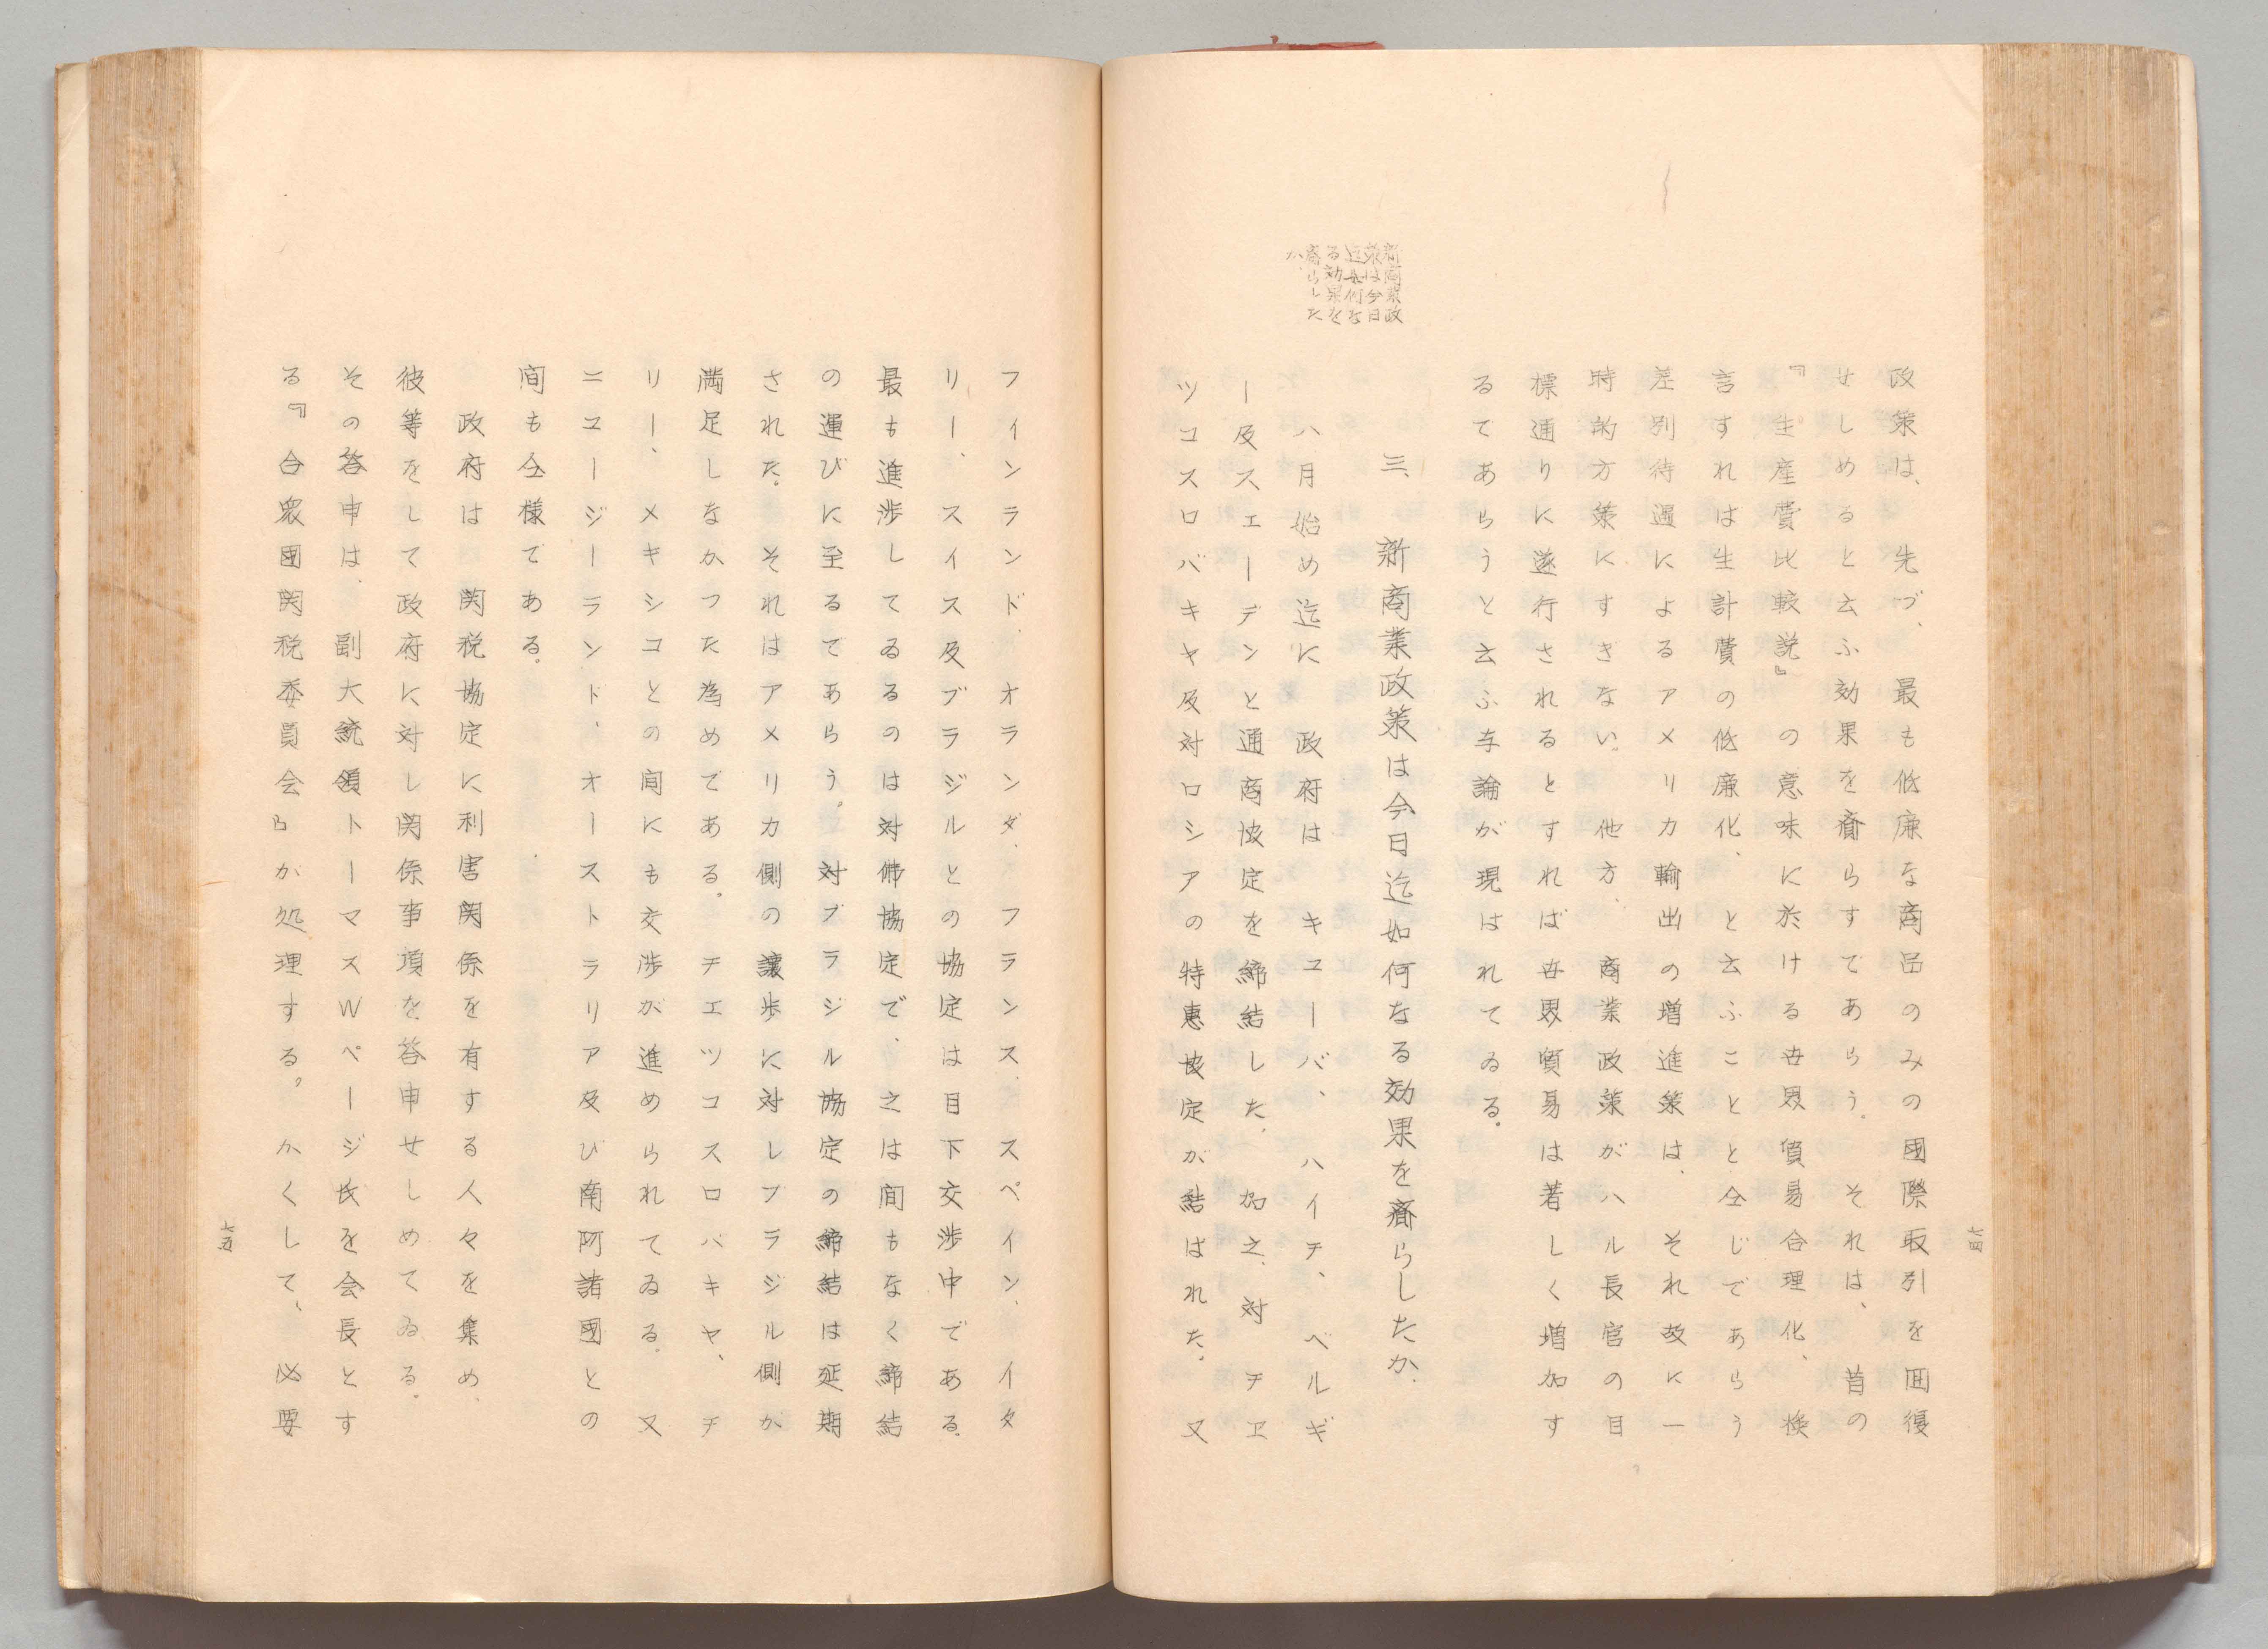 七四
政策は、先づ、最も低廉な商品のみの國際取引を囬復
せしめると云ふ効果を齎らすであらう。それは、昔の
『生産費比較説』の意味に於ける世界貿易合理化、換
言すれは生計費の低廉化、と云ふことと仝じであらう
差別待遇によるアメリカ輸出の増進策は、それ故に一
時的方策にすぎない。他方、商業政策がハル長官の目
標通りに遂行されるとすれば世界貿易は著しく増加す
るてあらうと云ふ与論が現はれてゐる。
新商業政
策は今日
迄如何な
る効果を
齎らした
か、
三、新商業政策は今日迄如何なる効果を齎らしたか、
八月始め迄に政府はキユーバ、ハイチ、ベルギ
ー及スエーデンと通商協定を締結した、加之、対チエ
ツコスロバキヤ及対ロシアの特惠協定が結ばれた。又
フインランド、オランダ、フランス、スペイン、イタ
リー、スイス及ブラジルとの協定は目下交渉中である。
最も進渉してゐるのは対佛協定で、之は間もなく締結
の運びに至るであらう。対ブラジル協定の締結は延期
された。それはアメリカ側の讓歩に対しブラジル側か
満足しなかつた為めである。チエツコスロバキヤ、チ
リー、メキシコとの間にも交渉が進められてゐる。又
ニユージーランド、オーストラリア及び南阿諸國との
間も仝様てある。
政府は関税協定に利害関係を有する人々を集め、
彼等をして政府に対し関係事項を答申せしめてゐる。
その答申は、副大統領トーマスWペーージ氏を会長とす
る『合衆國関税委員会』が処理する。かくして、必要
七五